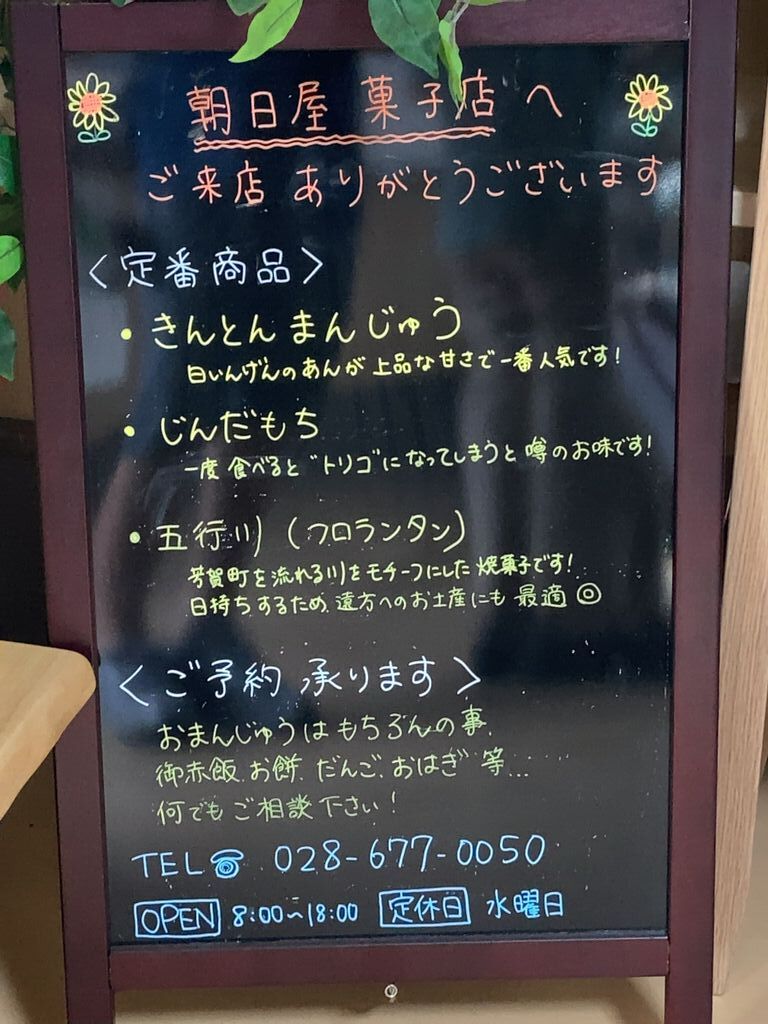 朝日屋 菓子店 へ
ご来店 ありがとうございます
〈定番商品〉
・きんとん まんじゅう
白いんげんのあんが 上品な甘さで一番人気です!
・じんだもち
一度 食べると"トリコ"になってしまうと 噂のお味です!
・五行川 (フロランタン)
芳賀町を流れる川をモチーフにした焼菓子です!
日持ちするため、遠方へのお土産にも 最適 ◎
〈ご予約 承ります〉
おまんじゅうは もちろんの事、
御赤飯、お餅、だんご、おはぎ 等...
何でも ご相談下さい!
TEL☎ 028-677-0050
OPEN 8:00~18:00 定休日 水曜日